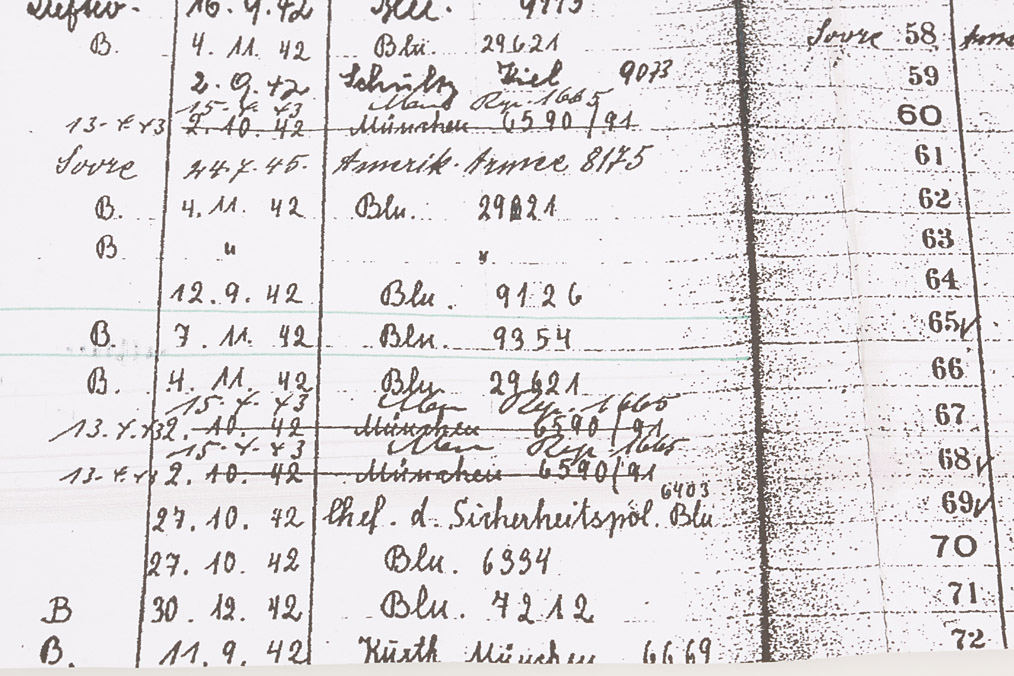 16.9.42 Blu. 9773
B. 4. 11. 42 Blu. 29621 Sovre 58
2. 9. 42 Schultz Kiel 9073 59
15-4-43 1665
13-4-43 2. 10. 42 München 6590/91 60
Sovre 24.7.45. Amerik. Armee 8175 61
B. 4. 11. 42 Blu. 29821 62
B " " 63
12. 9. 42 Blu. 9126 64
B. 7. 11. 42 Blu. 9354 65
B. 4. 11. 42 Blu 29621 66
15-4-43 1665
13.4.43 2. 10. 42 München 6590/91 67
15-4-43 1665
13-4-43 2. 10. 42 München 6590/91 68
6403
27. 10. 42 Chef. d. Sicherheitspol. Blu 69
27. 10. 42 Blu. 6994 70
B 30. 12. 42 Blu. 7212 71
B. 11. 9. 42 Kürth München 6669 72